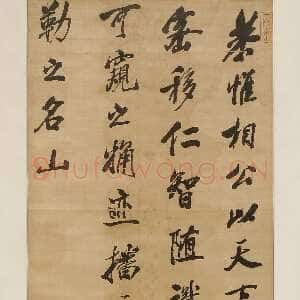 恭惟相公以天
密移仁智随
可窺之迹
勒之名山
Shufawang.CN